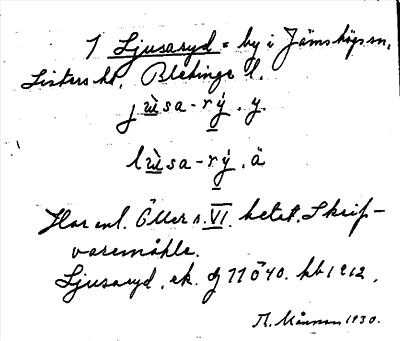 1 Ljusaryd = by i Jämshögs sn,
Listers hd, Blekinge l.
jùsa-rý. y.
lùsa-rý. ä
Har enl. Öller s. VI. betet. Skrif-
varemåhle.
Ljusaryd, ek. 77Ö40. kb 1912.
1930.